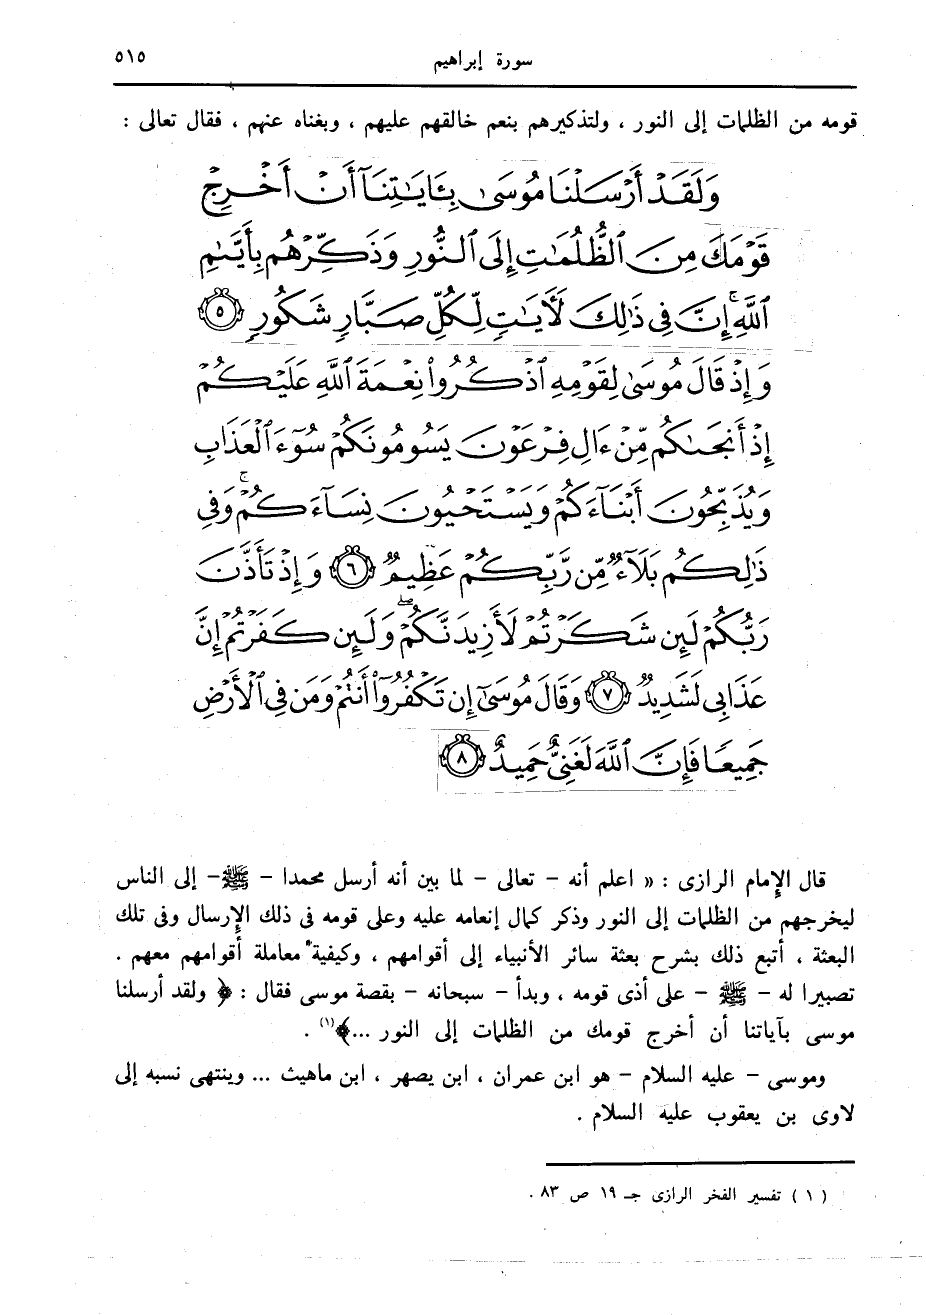 سورة إبراهيم ٥١٥
قومه من الظلمات إلى النور ، ولتذكيرهم بنعم خالقهم عليهم ، وبغناه عنهم ، فقال تعالى :
وَلَقَدْ أَرْسَلْنَا مُوسَىٰ بِـَٔايَٰتِنَآ أَنْ أَخْرِجْ
قَوْمَكَ مِنَ ٱلظُّلُمَٰتِ إِلَى ٱلنُّورِ وَذَكِّرْهُم بِأَيَّىٰمِ
ٱللَّهِ ۚ إِنَّ فِى ذَٰلِكَ لَأَيَٰتٍ لِّكُلِّ صَبَّارٍ شَكُورٍ ٥
وَإِذْ قَالَ مُوسَىٰ لِقَوْمِهِ ٱذْكُرُوا۟ نِعْمَةَ ٱللَّهِ عَلَيْكُمْ
إِذْ أَنجَىٰكُم مِّنْ ءَالِ فِرْعَوْنَ يَسُومُونَكُمْ سُوٓءَ ٱلْعَذَابِ
وَيُذَبِّحُونَ أَبْنَآءَكُمْ وَيَسْتَحْيُونَ نِسَآءَكُمْ ۚ وَفِى
ذَٰلِكُم بَلَآءٌ مِّن رَّبِّكُمْ عَظِيمٌ ٦ وَإِذْ تَأَذَّنَ
رَبُّكُمْ لَئِن شَكَرْتُمْ لَأَزِيدَنَّكُمْ ۖ وَلَئِن كَفَرْتُمْ إِنَّ
عَذَابِى لَشَدِيدٌ ٧ وَقَالَ مُوسَىٰٓ إِن تَكْفُرُوٓا۟ أَنتُمْ وَمَن فِى ٱلْأَرْضِ
جَمِيعًا فَإِنَّ ٱللَّهَ لَغَنِىٌّ حَمِيدٌ ٨
قال الإمام الرازى : « اعلم أنه - تعالى - لما بين أنه أرسل محمدا - ﷺ - إلى الناس
ليخرجهم من الظلمات إلى النور وذكر كمال إنعامه عليه وعلى قومه فى ذلك الإرسال وفى تلك
البعثة ، أتبع ذلك بشرح بعثة سائر الأنبياء إلى أقوامهم ، وكيفية معاملة أقوامهم معهم .
تصبيرا له - ﷺ - على أذى قومه ، وبدأ - سبحانه - بقصة موسى فقال : ﴿ ولقد أرسلنا
موسى بآياتنا أن أخرج قومك من الظلمات إلى النور ...﴾(١) .
وموسى - عليه السلام - هو ابن عمران ، ابن يصهر ، ابن ماهيث ... وينتهى نسبه إلى
لاوى بن يعقوب عليه السلام .
( ١ ) تفسير الفخر الرازى جـ ١٩ ص ٨٣ .